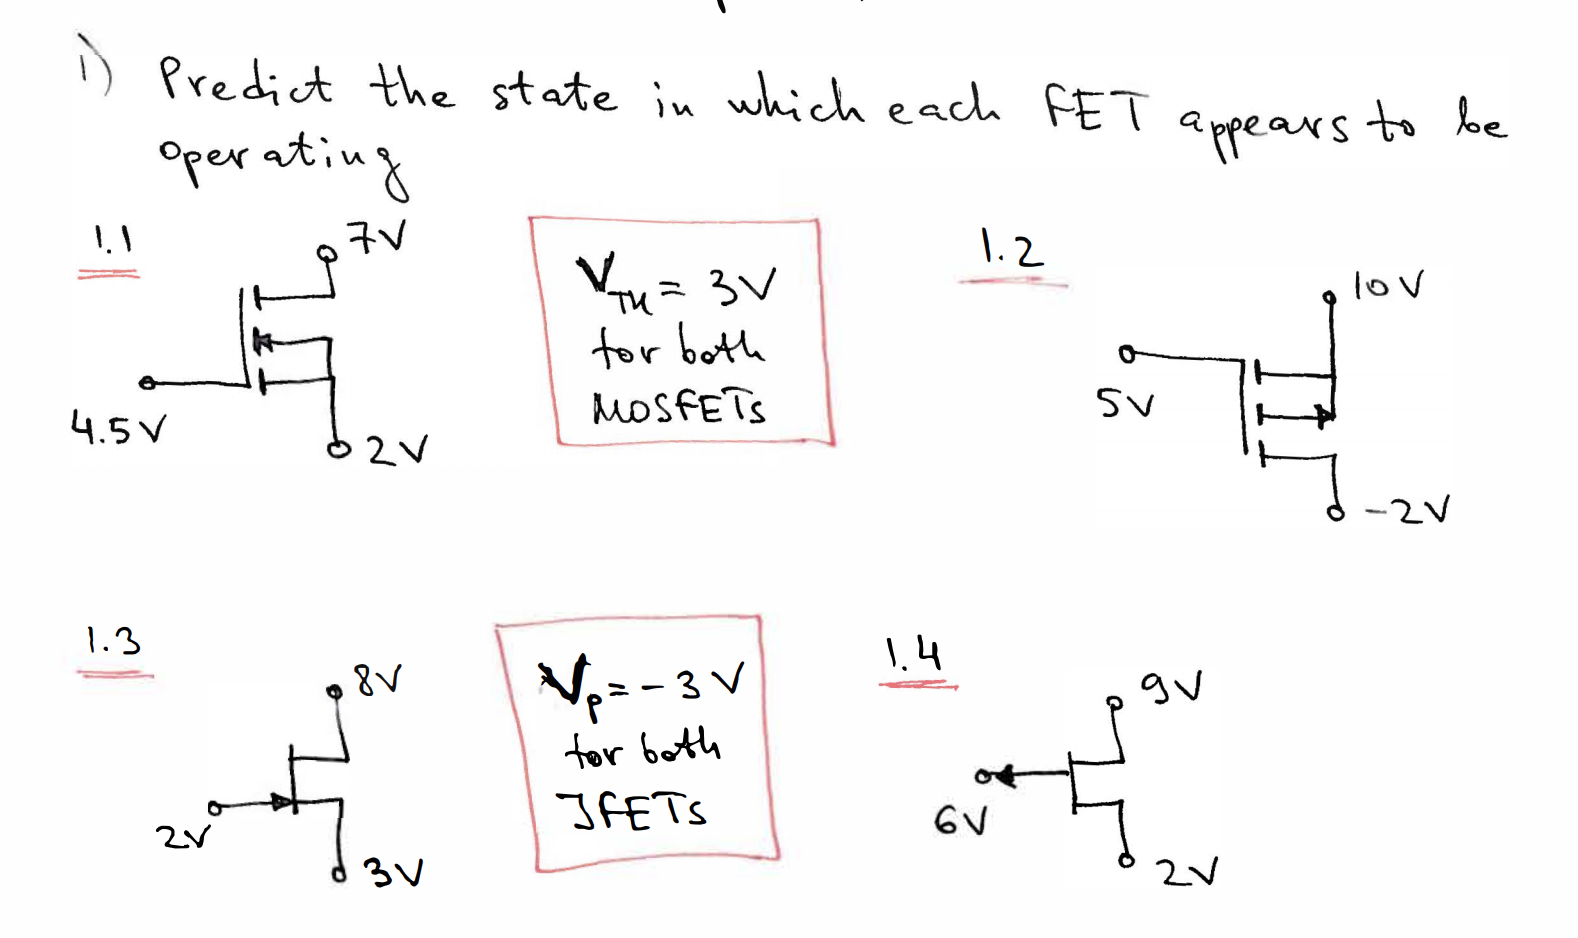 1) Predict the state in which each FET appears to be
operating
1.1
7V
4.5V
2V
VTH = 3V
for both
MOSFETs
1.2
10V
5V
-2V
1.3
8V
2V
3V
Vp = -3V
for both
JFETs
1.4
9V
6V
2V